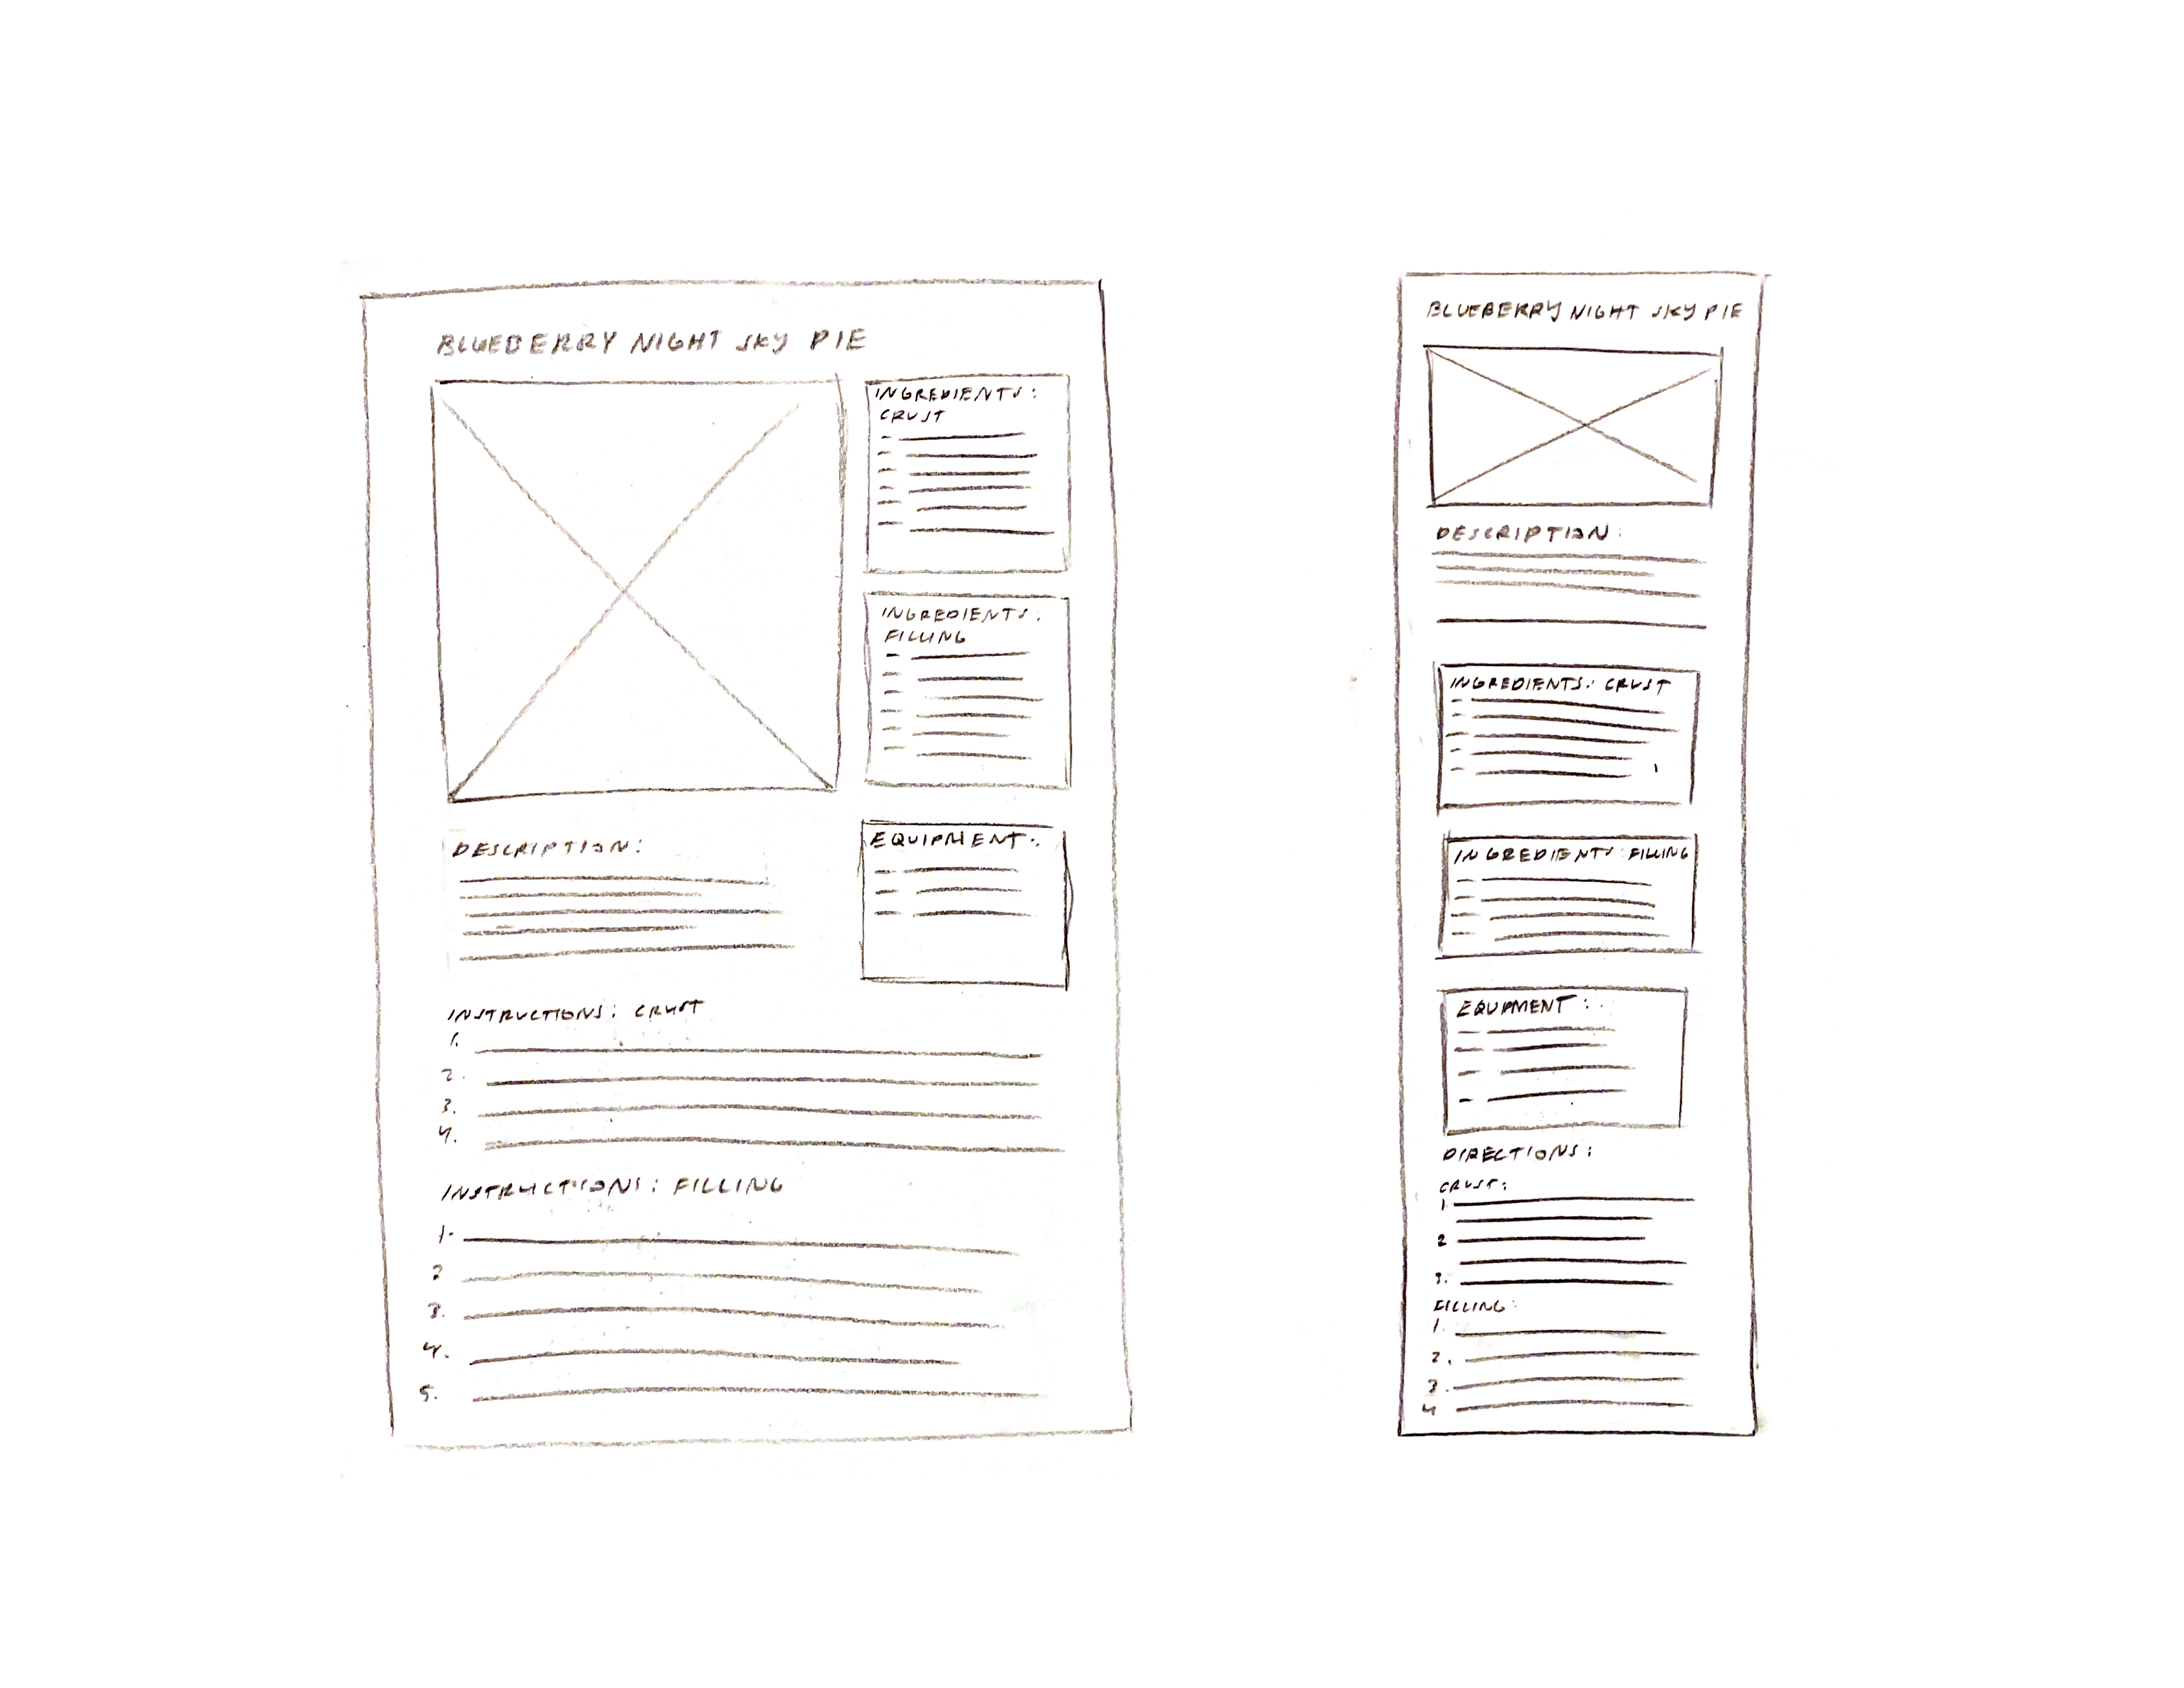 BLUEBERRY NIGHT SKY PIE
INGREDIENTS:
CRUST
INGREDIENTS:
FILLING
DESCRIPTION:
EQUIPMENT:
INSTRUCTIONS: CRUST
1.
2.
3.
4.
INSTRUCTIONS: FILLING
1.
2
3.
4.
5.
BLUEBERRY NIGHT SKY PIE
DESCRIPTION:
INGREDIENTS: CRUST
INGREDIENTS: FILLING
EQUPMENT:
DIRECTIONS:
CRUST:
1.
2
3.
FILLING:
1.
2.
3.
4